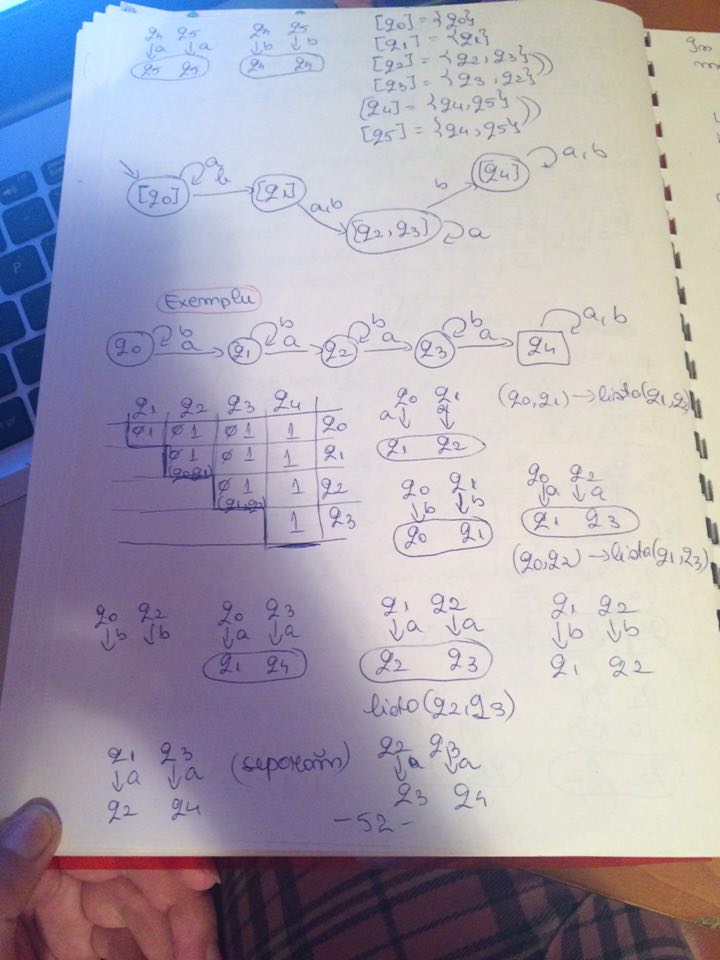 q4 q5 q4 q5
↓a ↓a ↓b ↓b
q5 q5 q4 q4
[q0] = {q0}
[q1] = {q1}
[q2] = {q2, q3}
[q3] = {q3, q2}
[q4] = {q4, q5}
[q5] = {q4, q5}
[q0] a, b [q1] a,b [q2, q3] a b [q4] a, b
Exemplu
q0 b a q1 b a q2 b a q3 b a q4 a, b
q1 q2 q3 q4
0 1 0 1 0 1 1 q0
0 1 0 1 1 q1
(q0,q1)
0 1 1 q2
(q1,q2)
1 q3
q0 q1 (q0,q1) → lista(q1,q2)
a↓ ↓
q1 q2
q0 q1
↓b ↓b
q0 q1
q0 q2
↓a ↓a
q1 q3
(q0,q2) → lista(q1,q3)
q0 q2
↓b ↓b
q0 q3
↓a ↓a
q1 q4
q1 q2
↓a ↓a
q2 q3
lista(q2,q3)
q1 q2
↓b ↓b
q1 q2
q1 q3 (separat)
↓a ↓a
q2 q4
q2 q3
↓a ↓a
q3 q4
-52-